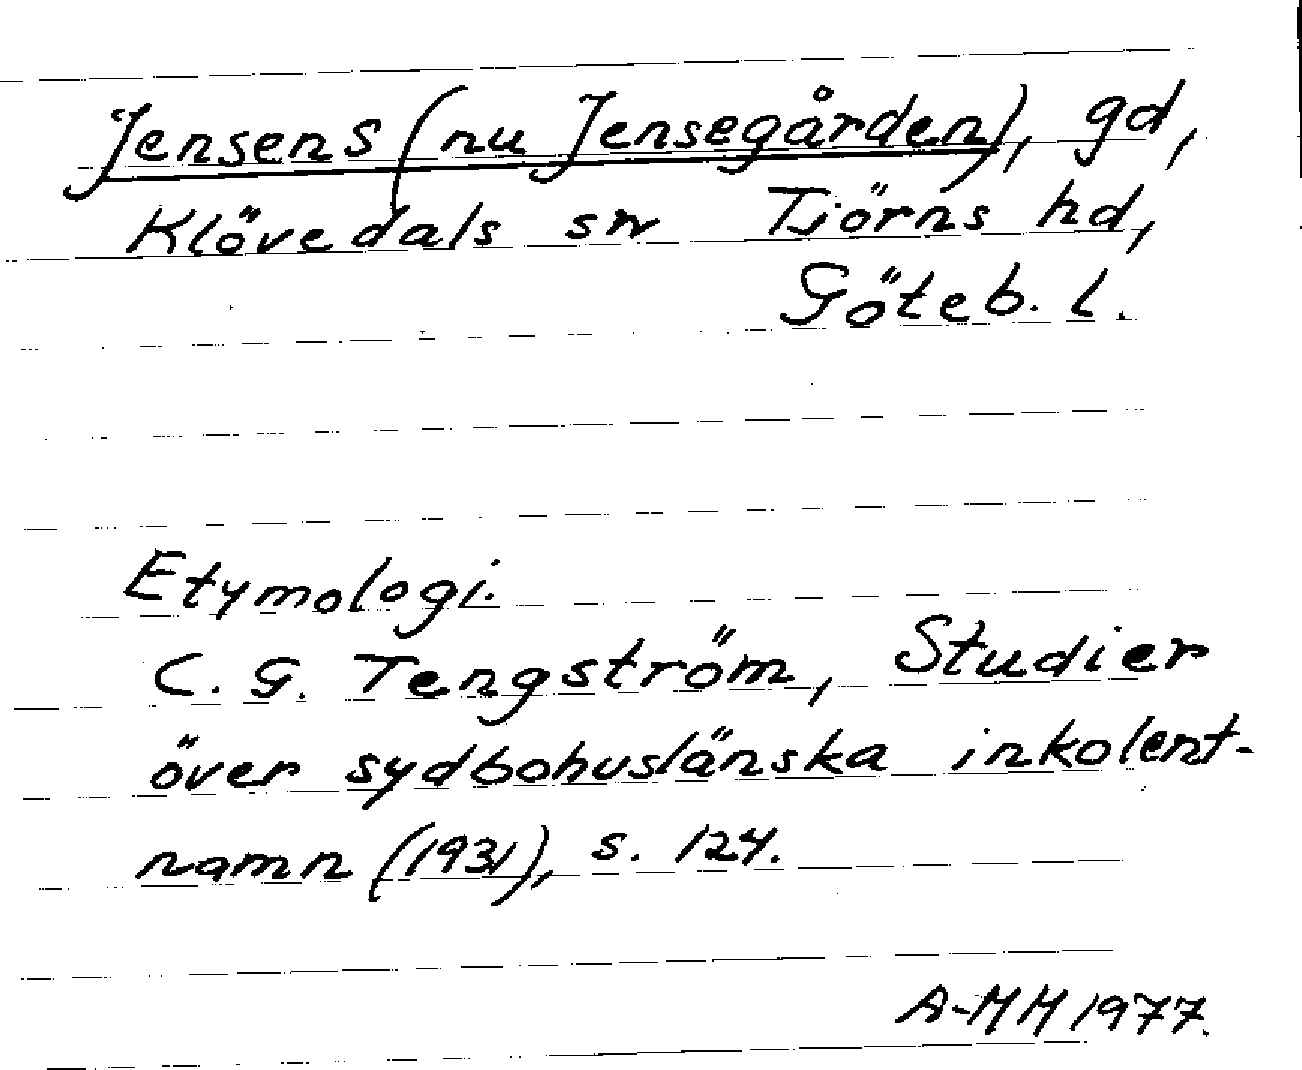 Jensens (nu Jensegården), gd,
Klövedals sn Tjörns hd,
Göteb. l.
Etymologi.
C. G. Tengström, Studier
över sydbohuslänska inkolent-
namn (1931), s. 124.
A-MH 1977.